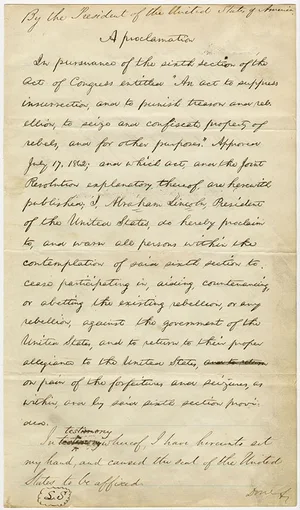 By the President of the United States of America
A proclamation
In pursuance of the sixth section of the
act of Congress entitled "An act to suppress
insurrection, and to punish treason and reb
ellion, to seize and confiscate property of
rebels, and for other purposes." Approved
July 17, 1862, and which act, and the Joint
Resolution explanatory thereof, are herewith
published, I, Abraham Lincoln, President
of the United States, do hereby proclaim
to, and warn all persons within the
contemplation of said sixth section to
cease participating in, aiding, countenancing,
or abetting the existing rebellion, or any
rebellion, against the government of the
United States, and to return to their proper
allegiance to the United States, and to return
on pain of the forfeitures and seizures, as
within, and by said sixth section provi-
ded.
testimony
In whereof, I have hereunto set
my hand, and caused the seal of the United
States to be affixed.
L.S
Done